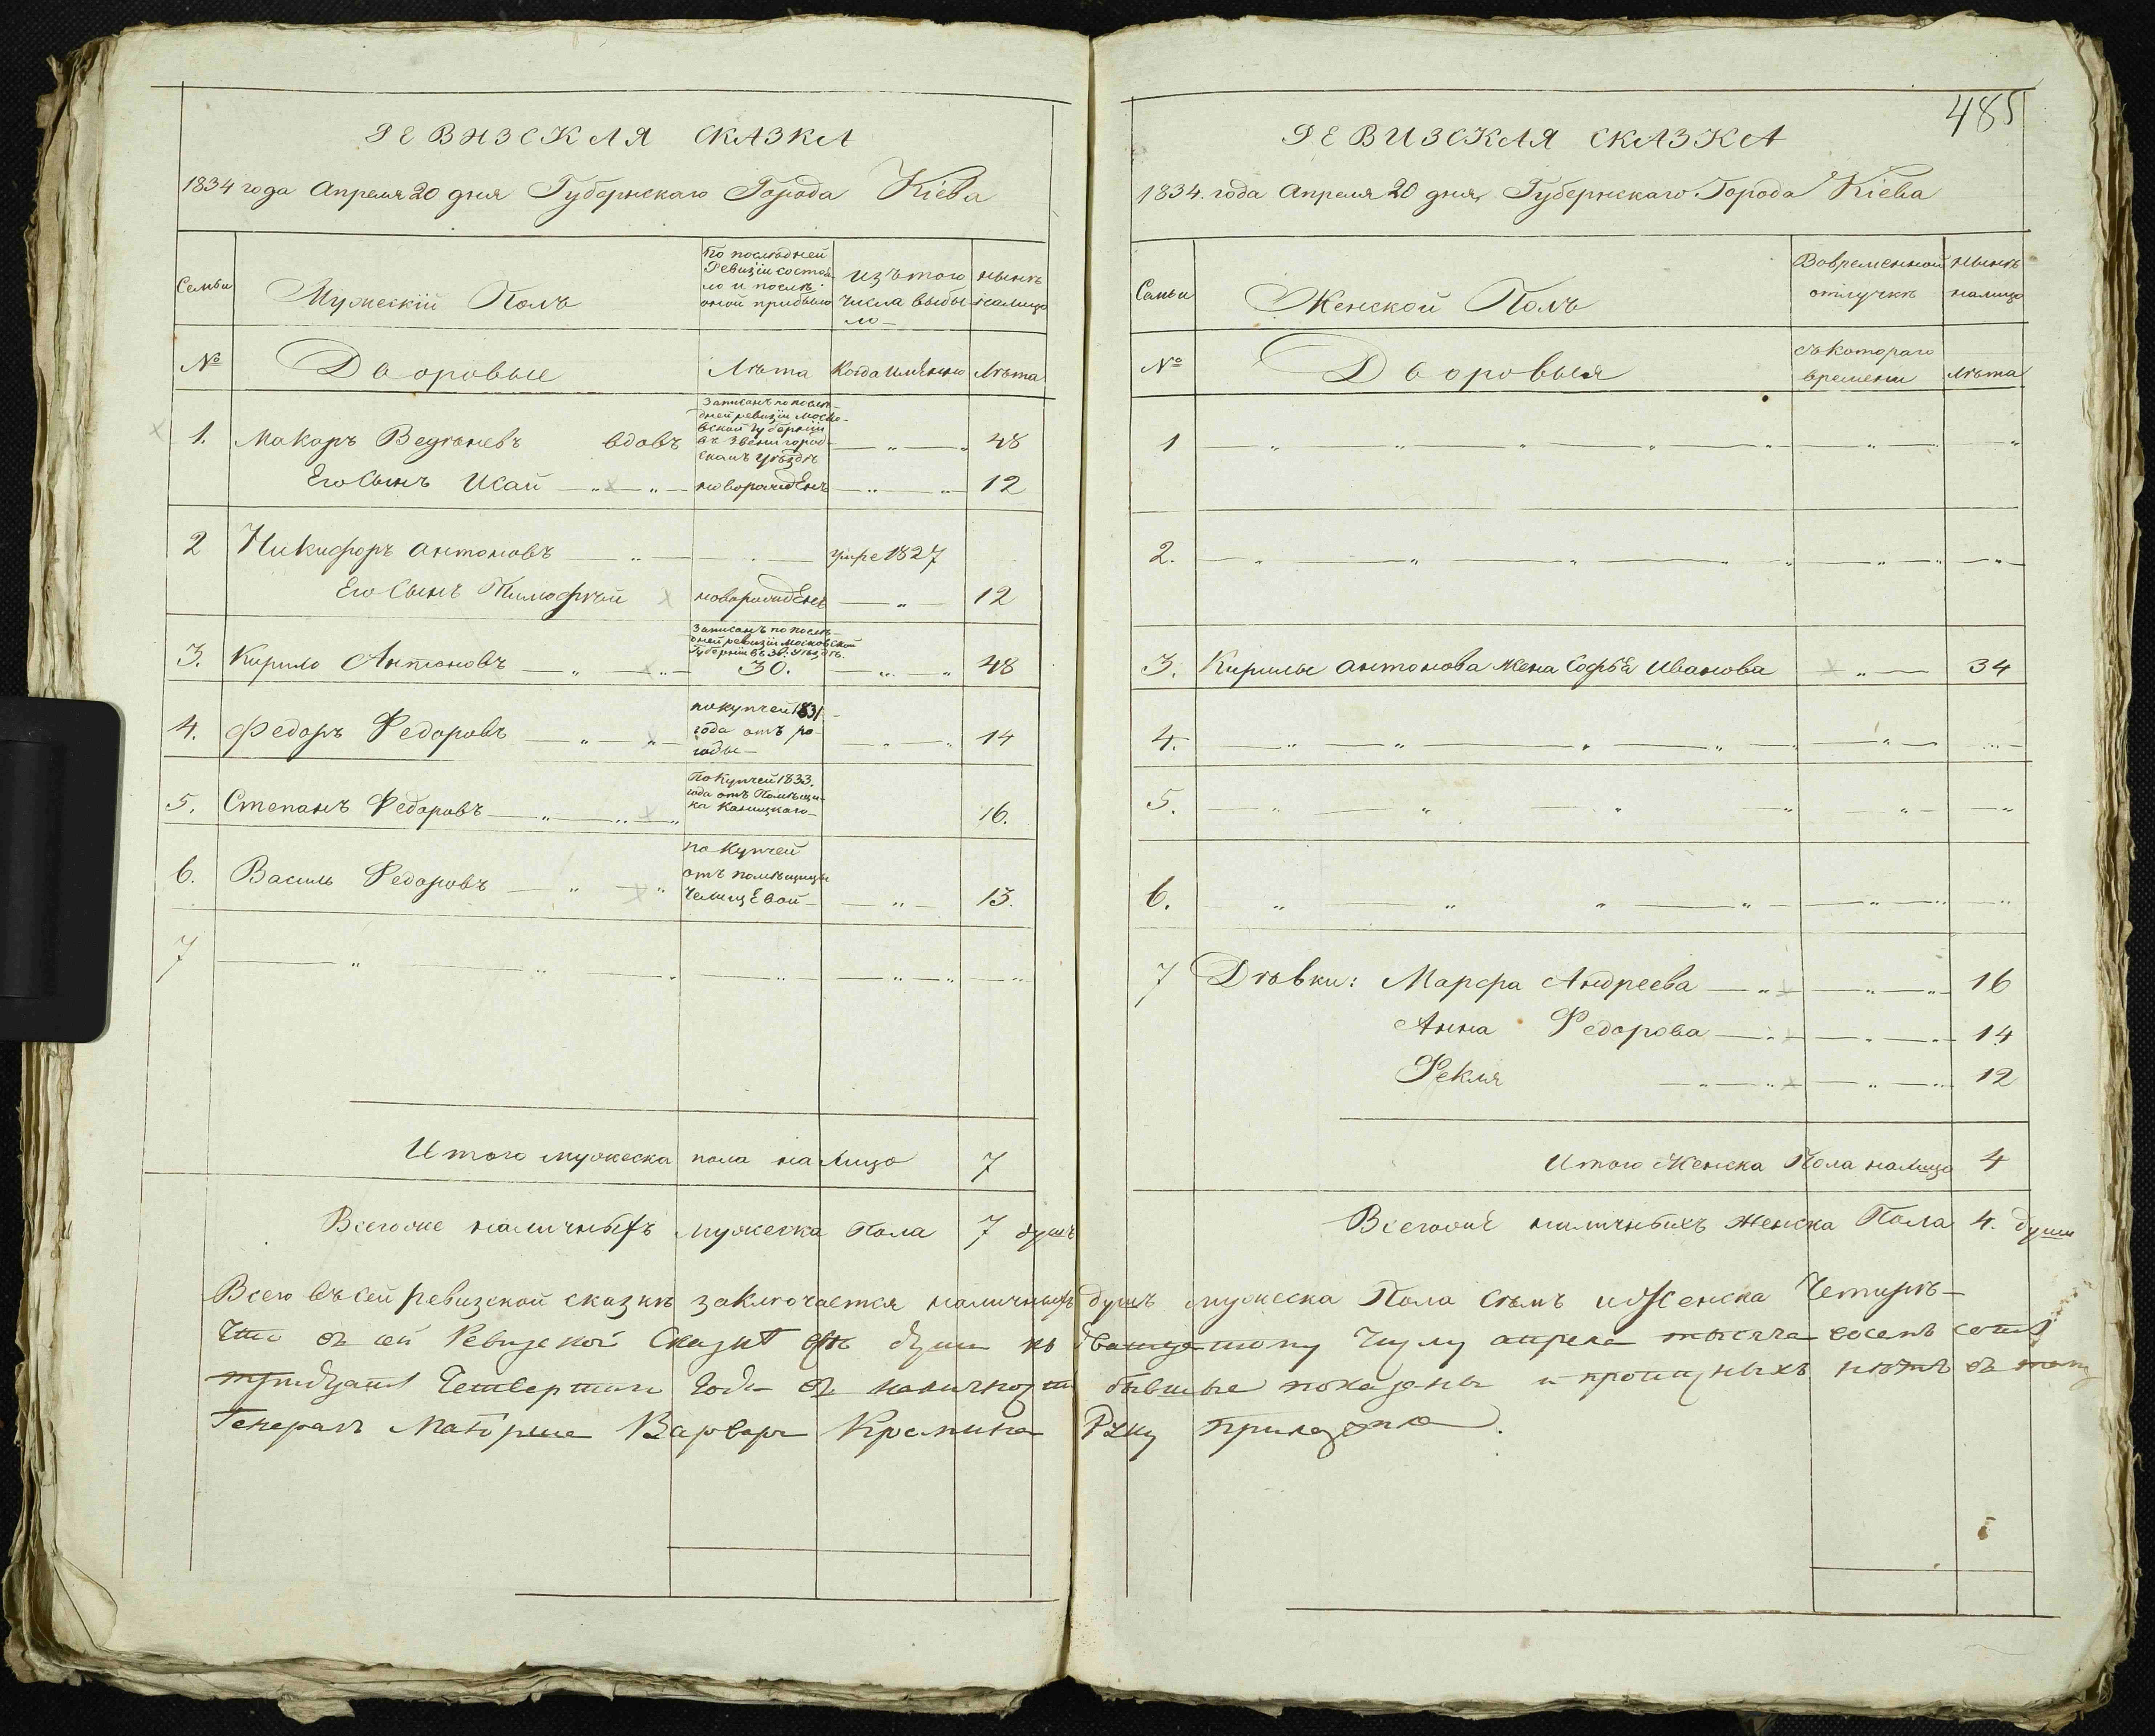 РЕВИЗСКАЯ СКАЗКА
1834 года Апреля 20 дня Губернскаго Города Кіева
Семьи
Мужескій Полъ
По последней
Ревизіи состоя
ло и после
оной прибыло
Изътого
числа выбы
ло
Нынѣ
налицо
№
Дворовые
Лѣта
Когда именно
Лѣта
1. Макаръ вдовъ
Записанъ по послѣ-
дней ревизіи Моско-
вской губерніи
въ Звенигород-
скомъ уѣздѣ
48
Его Сынъ Исай новорожденъ 12
2 Никифоръ Антоновъ умре 1827
Его Сынъ Тимофѣй новорожденъ 12
3. Кирило Антоновъ
Записанъ по послѣ-
дней ревизіи Московской
Губерніи въ Зв: уѣздѣ.
30.
48
4. Федоръ Федоровъ
покупчей 1831
года отъ ро-
годы
14
5. Степанъ Федоровъ
По Купчей 1833.
года отъ Помѣщи-
ка
16.
6. Василь Федоровъ
по Купчей
отъ помѣщицы
13.
7
Итого мужеска пола налицо 7
Всегоже наличныхъ мужеска Пола 7 душъ
485
РЕВИЗСКАЯ СКАЗКА
1834. года Апреля 20 дня Губернскаго Города Кіева
Семьи
Женской Полъ
Вовременной
отлучкѣ
Нынѣ
налицо
№
Дворовыя
Съкотораго
времени
Лѣта
1
2.
3. Кирилы Антонова Жена Софья Иванова 34
4.
5.
6.
7 Дѣвки: Марфа Андреева 16
Анна Федорова 14
Фекла 12
Итого Женска Пола налицо 4
Всегоже наличныхъ Женска Пола 4. души
Всего въ сей ревизской сказкѣ заключается наличныхъ душъ мужеска Пола Семъ и Женска Четыре
Что въ сей Ревизской Сказкѣ все души къ двадцатому Числу апреля тысяча восемь сотъ
тридцать Четвертаго Года въ наличности бывшие показаны и прописныхъ нѣтъ въ томъ
Генералъ Маіорша Варвара Руку Приложила.